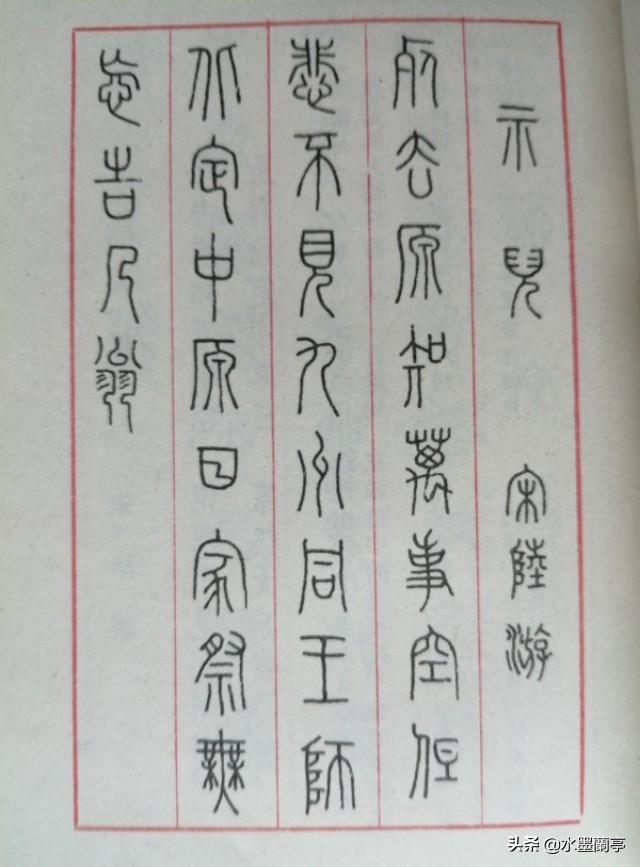 示兒 宋陸游
死去原知萬事空但
悲不見九州同王師
北定中原日家祭無
忘告乃翁
头条 @水墨蘭亭